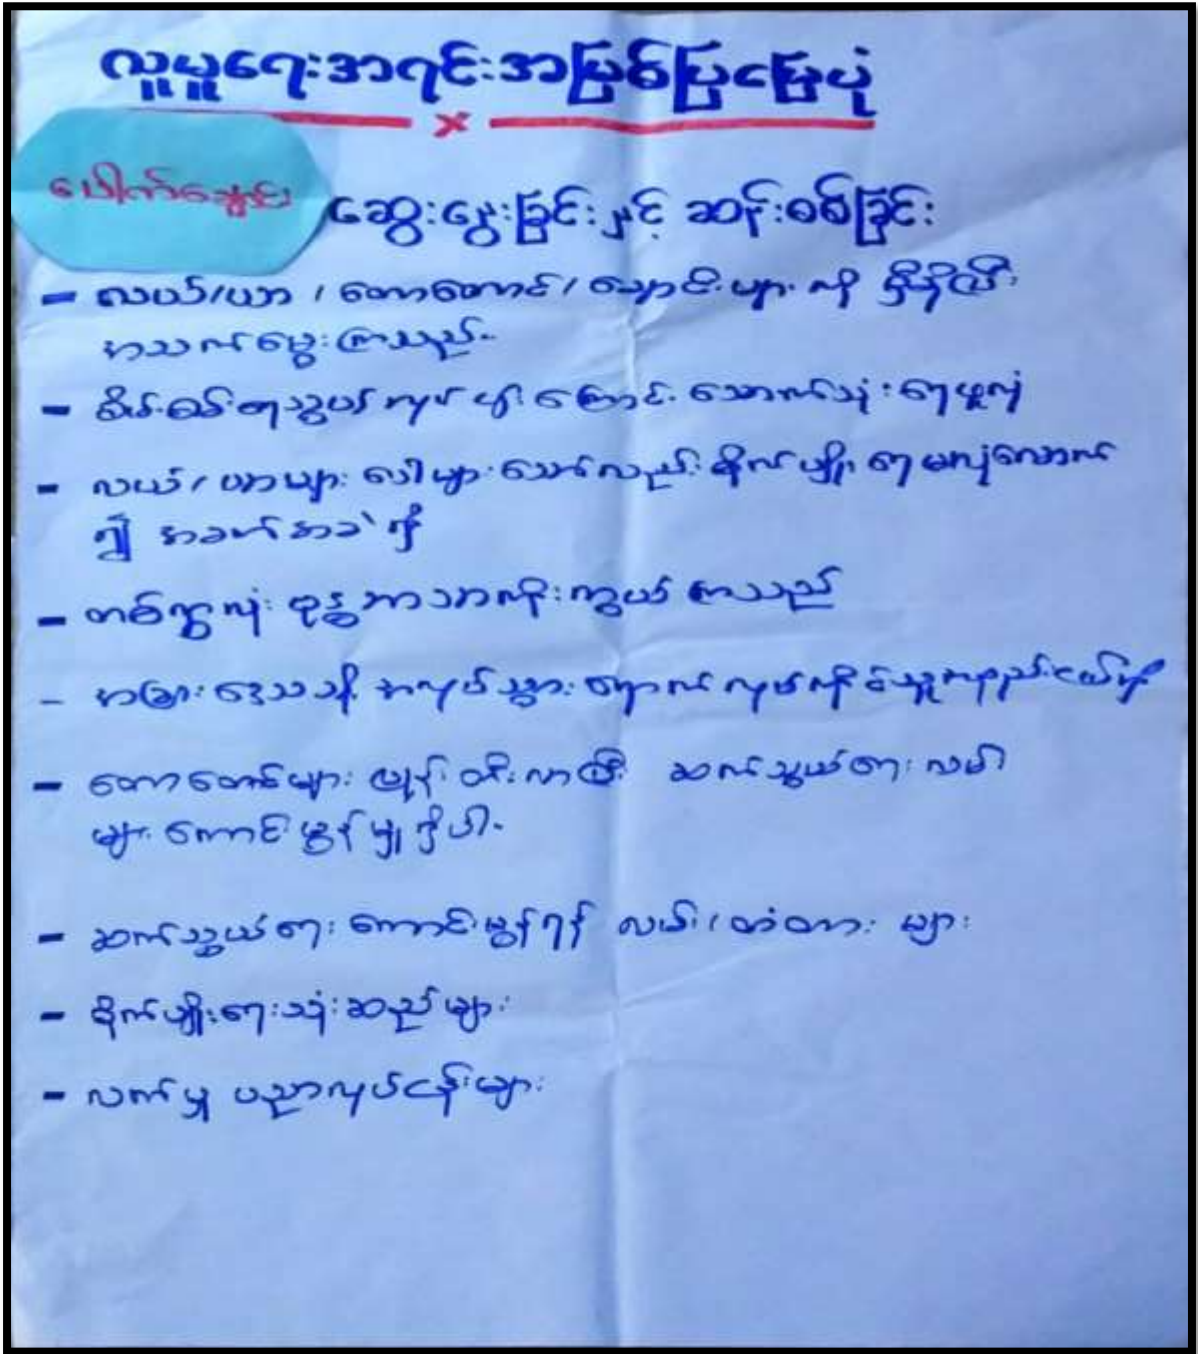 လူမှုရေးအရင်းအမြစ်ပြမြေပုံ
ပေါက်ချောင်း
ဆွေးနွေးခြင်းနှင့် ဆန်းစစ်ခြင်း
- လယ်/ယာ / တောတောင် / ချောင်းများ ကို မှီခိုပြီး
အသက်မွေးကြသည်။
- စိမ့်စမ်းရေသွယ်လုပ်ငန်းကြောင့် သောက်သုံးရေဖူလုံ
- လယ်/ယာများ ပေါများသော်လည်း စိုက်ပျိုးရေမလုံလောက်
၍ အခက်အခဲရှိ
- တစ်ရွာလုံး ဗုဒ္ဓဘာသာကိုးကွယ်ကြသည်
- အခြားဒေသသို့ အလုပ်သွားရောက်လုပ်ကိုင်သူအနည်းငယ်ရှိ
- တောတောင်များ ပြုန်းတီးလာပြီး ဆက်သွယ်ရေးလမ်း
များ ကောင်းမွန်မှုရှိပါ။
- ဆက်သွယ်ရေး ကောင်းမွန်ရန် လမ်း/တံတား များ
- စိုက်ပျိုးရေးသုံးဆည်များ
- လက်မှု ပညာလုပ်ငန်းများ